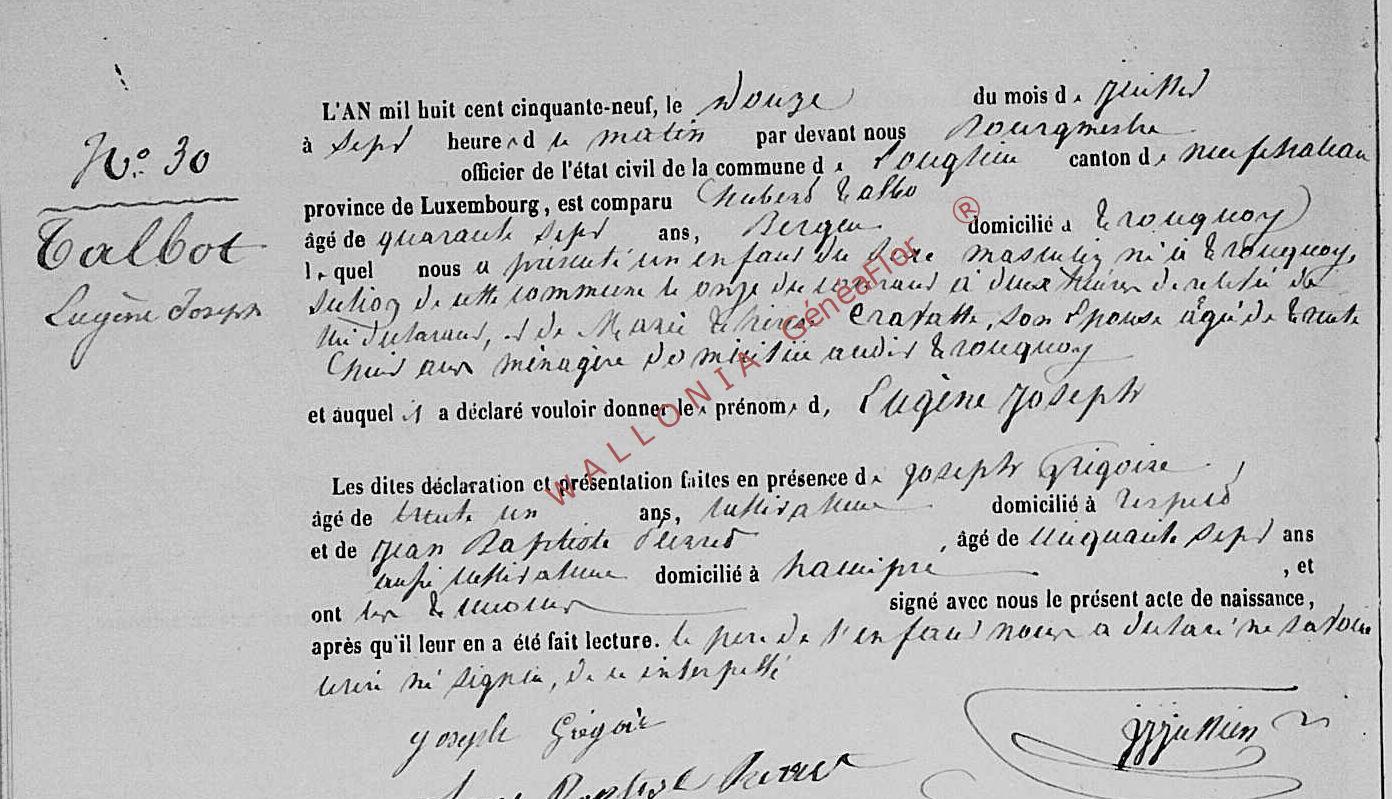 N.º 30
Talbot
Eugène Joseph
L'AN mil huit cent cinquante-neuf, le Douze du mois de juillet
à sept heures du matin par devant nous Bourgmestre
officier de l'état civil de la commune de Longlier canton de neufchateau
province de Luxembourg, est comparu hubert Talbo
âgé de quarante sept ans, Berger domicilié à Tronquoy
lequel nous a présenté un enfant du sexe masculin né à Tronquoy,
section de cette commune le onze du courant à deux heures de relevée de
lui déclarant, et de Marie Thérèse Cravatte, son Epouse âgée de trente
huit ans ménagère domiciliée audit Tronquoy
et auquel il a déclaré vouloir donner les prénoms d, Eugène Joseph
Les dites déclaration et présentation faites en présence de joseph Grégoire,
âgé de trente un ans, cultivateur domicilié à respelt
et de jean Baptiste Pierret, âgé de cinquante sept ans
aussi cultivateur domicilié à hamipré, et
ont les témoins signé avec nous le présent acte de naissance,
après qu'il leur en a été fait lecture. le père de l'enfant nous a déclaré ne savoir
écrire ni signer, de ce interpellé
joseph Grégoire
Jean Baptiste Pierret
WALLONIA GénéaFlor ®